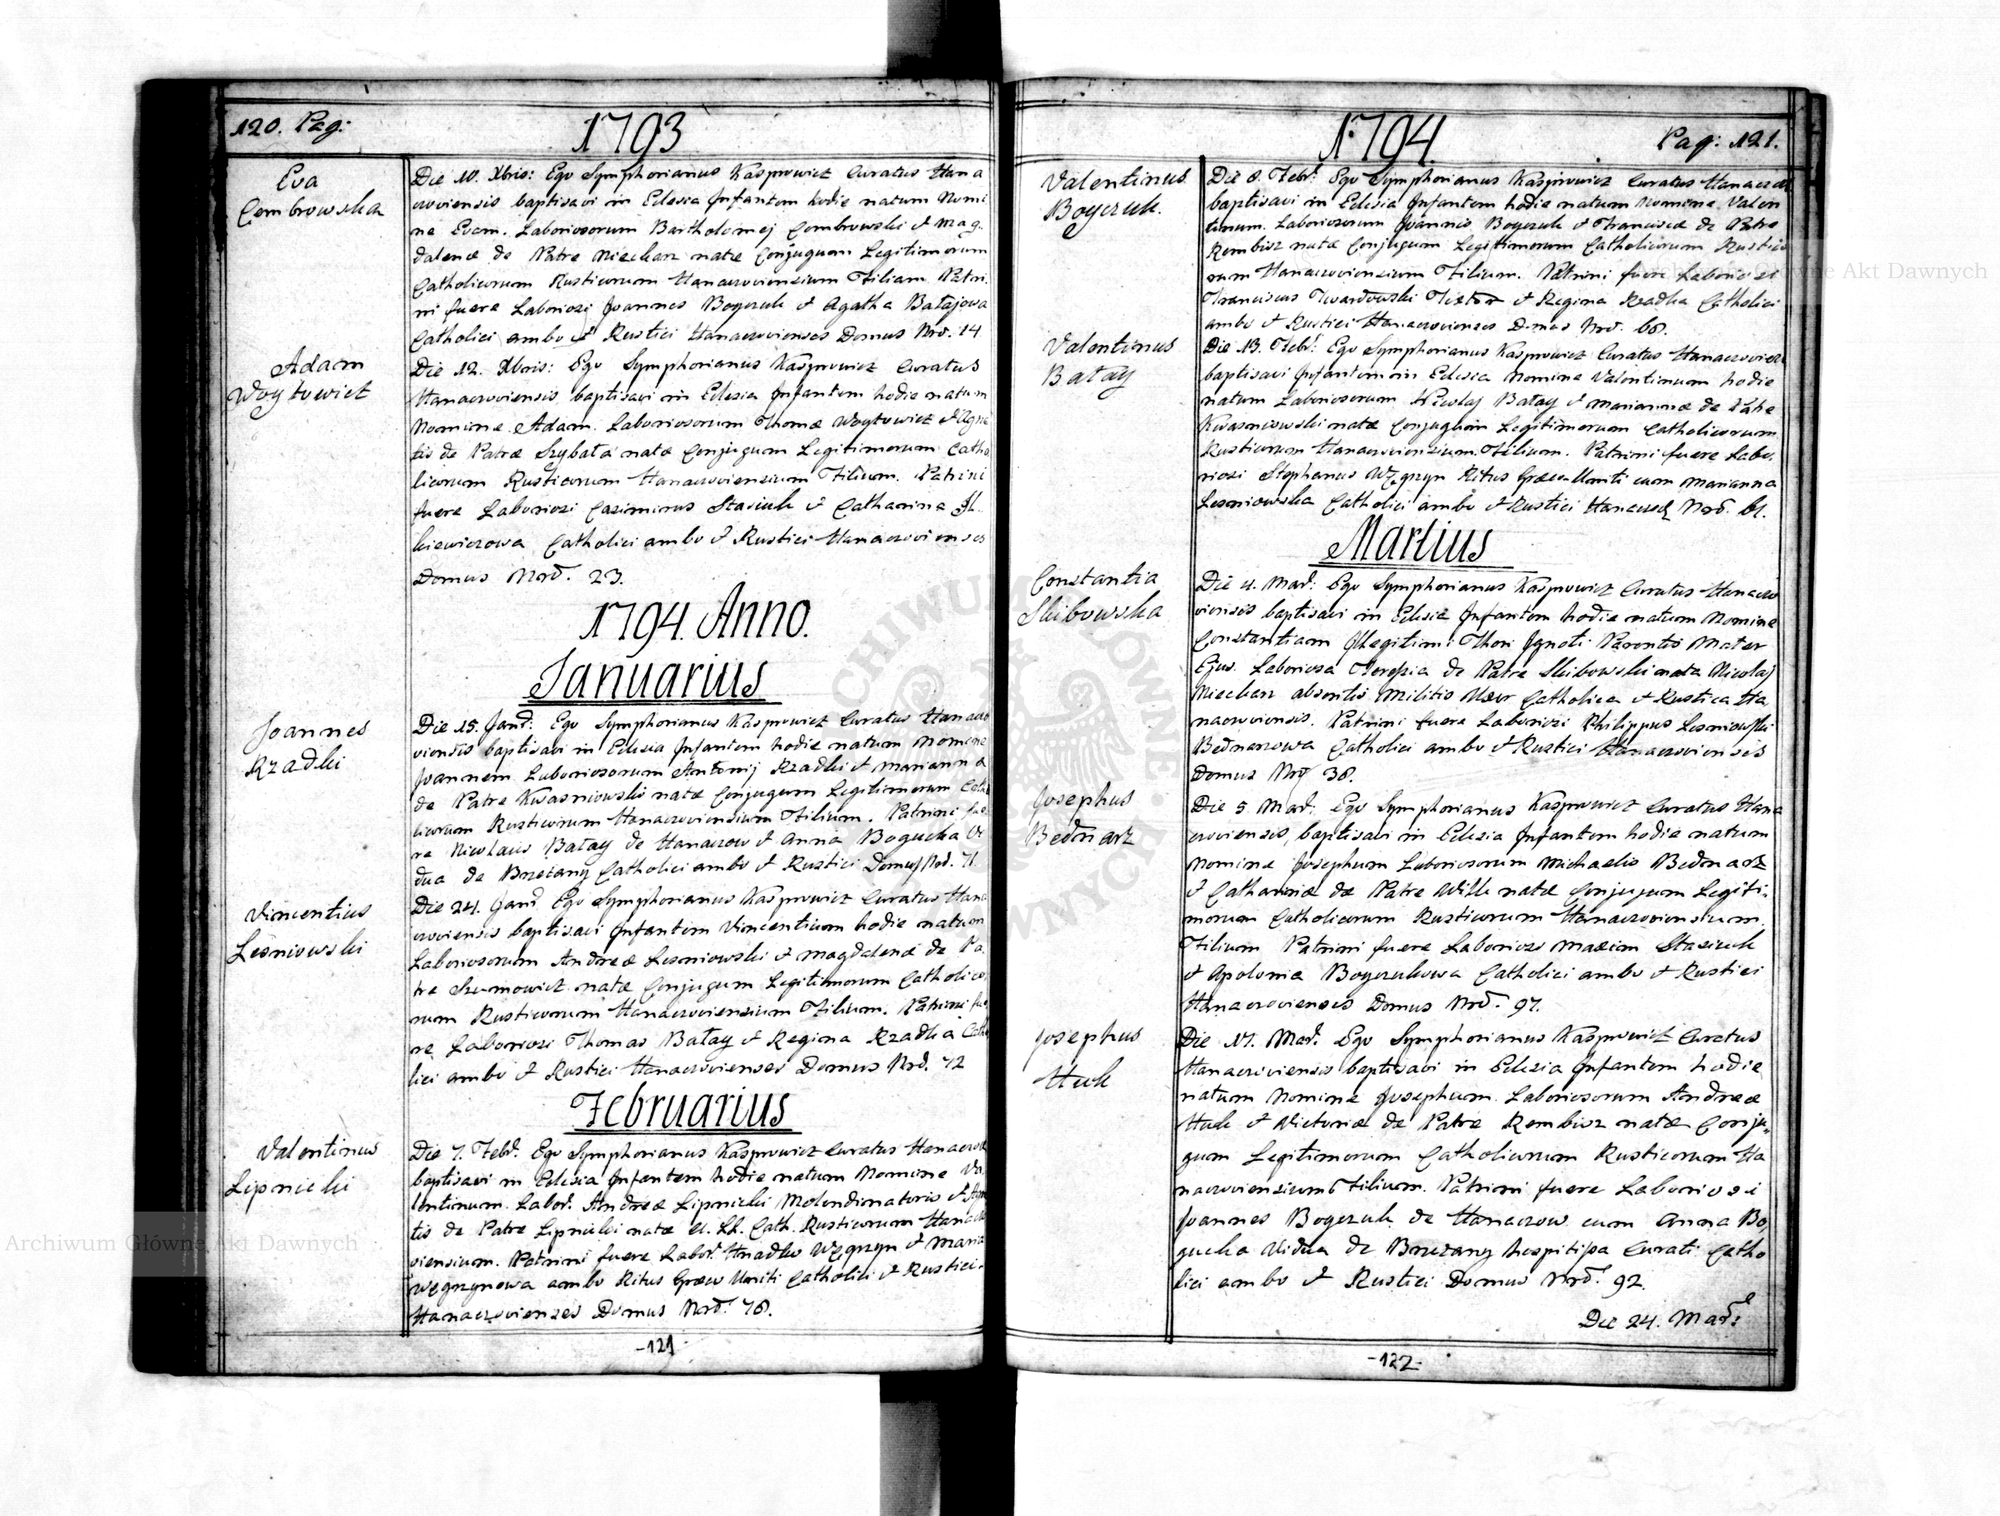 120. Pag:
1793
Eva
Cembrowska
Die 10. Xbris: Ego Symphorianus Kasprowicz Curatus Hana
czoviensis baptisavi in Eclesia Infantem hodie natum Nomi
ne Evam. Laboriosorum Bartholomej Cembrowski & Mag-
dalenæ de Patre Miechaz natæ Conjugum Legitimorum
Catholicorum Rusticorum Hanaczoviensium Filiam Patri-
ni fuere Laboriosi Joannes Boyczuk & Agatha Batajowa
Catholici ambo & Rustici Hanaczovienses Domus Nrō. 14
Adam
Woytowicz
Die 12. Xbris: Ego Symphorianus Kasprowicz Curatus
Hanaczoviensis baptisavi in Eclesia Infantem hodie natum
Nomine Adam. Laboriosorum Thomæ Woytowicz & Agne
tis de Patre Szybata natæ Conjugum Legitimorum Catho
licorum Rusticorum Hanaczoviensium Filium. Patrini
fuere Laboriosi Casimirus Stasiuk & Catharina
kiewiczowa Catholici ambo & Rustici Hanaczovienses
Domus Nrō. 23.
1794. Anno.
Januarius
Joannes
Rzadki
Die 15. Janū: Ego Symphorianus Kasprowicz Curatus Hanaczo
viensis baptisavi in Eclesia Infantem hodie natum Nomine
Joannem Laboriosorum Antonij Rzadki & Marianna
de Patre Kwasniowski natæ Conjugum Legitimorum Catho
licorum Rusticorum Hanaczoviensium Filium. Patrini fue
re Nicolaus Batay de Hanaczow & Anna Bogucka Vi
dua de Brzezany Catholici ambo & Rustici Domus Nrō. 71.
Vincentius
Leśniowski
Die 24. Janū Ego Symphorianus Kasprowicz Curatus Hana
czoviensis baptisavi Infantem Vincentium hodie natum
Laboriosorum Andreæ Lesniowski & Magdalenæ de Pa
tre Szumowicz natæ Conjugum Legitimorum Catholico
rum Rusticorum Hanaczoviensium Filium. Patrini fue
re Laboriosi Thomas Batay & Regina Rzadka Catho
lici ambo & Rustici Hanaczovienses Domus Nrō. 72
Februarius
Valentinus
Lipnicki
Die 7. Febrˢ. Ego Symphorianus Kasprowicz Curatus Hanaczov
baptisavi in Eclesia Infantem hodie natum Nomine Va
lentinum. Laborˢ. Andreæ Lipnicki Molendinatoris & Agne
tis de Patre Lipnicki natæ C. Ll. Cath. Rusticorum Hanaczo
viensium. Patrini fuere Laborˢ. Hnadko Węgrzyn & Maria
Węgrzynowa ambo Ritus Græco Uniti Catholici & Rustici
Hanaczovienses Domus Nrō. 78.
-121-
1794.
Pag: 121.
Valentinus
Boyczuk.
Die 8. Febrˢ. Ego Symphorianus Kasprowicz Curatus Hanaczov
baptisavi in Eclesia Infantem hodie natum Nomine Valen
tinum. Laboriosorum Joannis Boyczuk & Franciscæ de Patre
Rembisz natæ Conjugum Legitimorum Catholicorum Rustico
rum Hanaczoviensium Filium. Patrini fuere Laboriosi
Franciscus Twardowski Textor & Regina Rzadka Catholici
ambo & Rustici Hanaczovienses Domus Nrō. 68.
Valentinus
Batay
Die 13. Febrˢ. Ego Symphorianus Kasprowicz Curatus Hanaczovien
baptisavi Infantem in Eclesia Nomine Valentinum hodie
natum Laboriosorum Nicolaj Batay & Mariannæ de Patre
Kwasniowski natæ Conjugum Legitimorum Catholicorum
Rusticorum Hanaczoviensium Filium. Patrini fuere Labo-
riosi Stephanus Węgrzyn Ritus Græco Uniti cum Marianna
Lesniowska Catholici ambo & Rustici Hanaczov Nrō. 61.
Martius
Constantia
Skibowska
Die 4. Marˢ: Ego Symphorianus Kasprowicz Curatus Hanaczo
viensis baptisavi in Eclesia Infantem hodie natum Nomine
Constantiam Illegitimi Thori Ignoti Parentis Mater
Ejus. Laboriosa Teressia de Patre Skibowski nata Nicolaj
Miechaz absentis Militis Uxor Catholica & Rustica Ha
naczoviensis. Patrini fuere Laboriosi Philippus Lesniowski
Bednarzowa Catholici ambo & Rustici Hanaczovienses
Domus Nrō 38.
Josephus
Bednarz
Die 5. Marˢ: Ego Symphorianus Kasprowicz Curatus Hana
czoviensis, baptisavi in Eclesia Infantem hodie natum
Nomine Josephum Laboriosorum Michaelis Bednarz
& Catharinæ de Patre Wilk natæ Conjugum Legiti-
morum Catholicorum Rusticorum Hanaczoviensium
Filium Patrini fuere Laboriosi Maxim Stasiuk
& Apolonia Boyczukowa Catholici ambo & Rustici
Hanaczovienses Domus Nrō. 97.
Josephus
Huk
Die 17. Marˢ. Ego Symphorianus Kasprowicz Curatus
Hanaczoviensis baptisavi in Eclesia Infantem hodie
natum Nomine Josephum. Laboriosorum Andreæ
Huk & Victoriæ de Patre Rembisz natæ Conju-
gum Legitimorum Catholicorum Rusticorum Ha
naczoviensium Filium. Patrini fuere Laboriosi
Joannes Boyczuk de Hanaczow cum Anna Bo
gucka Vidua de Brzezany hospitissa Curati Catho
lici ambo & Rustici Domus Nrō. 92.
Die 24. Marˢ:
-122-
Archiwum Główne Akt Dawnych
Archiwum Główne Akt Dawnych